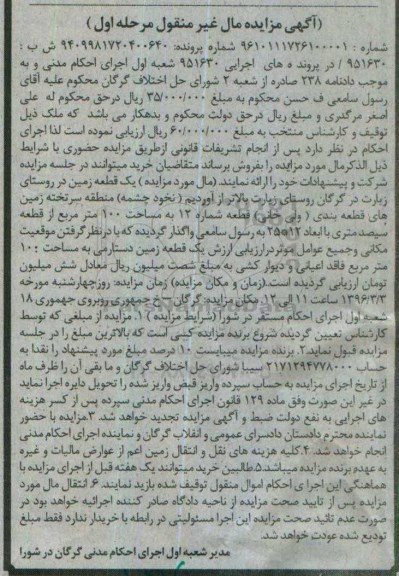 (آگهی مزایده مال غیر منقول مرحله اول)
شماره : ۹۶۱۰۱۱۱۷۲۶۱۰۰۰۰۱ شماره پرونده: ۹۴۰۹۹۸۱۷۲۰۴۰۰۶۴۰ ش ب :
۹۵۱۶۳۰ / در پرونده های اجرایی ۹۵۱۶۳۰ شعبه اول اجرای احکام مدنی و به
موجب دادنامه ۲۳۸ صادره از شعبه ۲ شورای حل اختلاف گرگان محکوم علیه آقای
رسول سامعی ف حسن محکوم به مبلغ ۳۵/۰۰۰/۰۰۰ ریال درحق محکوم له علی
اصغر مرگدری و مبلغ ریال درحق دولت محکوم و بدهکار می باشد که ملک ذیل
توقیف و کارشناس منتخب به مبلغ ۶۰/۰۰۰/۰۰۰ ریال ارزیابی نموده است لذا اجرای
احکام در نظر دارد پس از انجام تشریفات قانونی ازطریق مزایده حضوری با شرایط
ذیل الذکرمال مورد مزایده را بفروش برساند متقاضیان خرید میتوانند در جلسه مزایده
شرکت و پیشنهادات خود را ارائه نمایند. (مال مورد مزایده) یک قطعه زمین در روستای
زیارت در گرگان روستای زیارت بالاتر از آوردیم (نخود چشمه) منطقه سرتخته زمین
های قطعه بندی (ولی خانی) قطعه شماره ۱۳ به مساحت ۱۰۰ متر مربع از قطعه
سیصد متری با ابعاد ۱۲*۲۵ به رسول سامعی واگذار گردیده که با درنظر گرفتن موقعیت
مکانی وجمیع عوامل موثر درارزیابی ارزش یک قطعه زمین دستارمی به مساحت ۱۰۰
متر مربع فاقد اعیانی و دیوار کشی به مبلغ شصت میلیون ریال معادل شش میلیون
تومان ارزیابی گردیده است.(زمان و مکان مزایده) زمان مزایده: روزچهارشنبه مورخه
۱۳۹۶/۳/۳ ساعت ۱۱ الی ۱۲ مکان مزایده: گرگان خ جمهوری روبروی جمهوری ۱۸
شعبه اول اجرای احکام مستقر در شورا (شرایط مزایده) ۱. مزایده از مبلغی که توسط
کارشناس تعیین گردیده شروع برنده مزایده کسی است که بالاترین مبلغ را در جلسه
مزایده قبول نماید۲. برنده مزایده میبایست ۱۰ درصد مبلغ مورد پیشنهاد را نقدا به
حساب ۲۱۷۱۲۹۴۷۷۸۰۰۰ سیبا شورای حل اختلاف گرگان و ما بقی آن را ظرف ماه
از تاریخ اجرای مزایده به حساب سپرده واریز قبض واریز شده را تحویل دایره اجرا نماید
در غیر این صورت وفق ماده ۱۲۹ قانون اجرای احکام مدنی سپرده پس از کسر هزینه
های اجرایی به نفع دولت ضبط و آگهی مزایده تجدید خواهد شد. ۳.مزایده با حضور
نماینده محترم دادستان دادسرای عمومی و انقلاب گرگان و نماینده اجرای احکام مدنی
انجام خواهد شد. ۴.کلیه هزینه های نقل و انتقال زمین اعم از عوارض مالیات و غیره
به عهده برنده مزایده میباشد.۵.طالبین خرید میتوانند یک هفته قبل از اجرای مزایده با
هماهنگی این اجرای احکام اموال منقول توقیف شده بازید نمایند. ۶. انتقال مال مورد
مزایده پس از تایید صحت مزایده از ناحیه دادگاه صادر کننده اجرائیه خواهد بود در
صورت عدم تائید صحت مزایده این اجرا مسئولیتی در رابطه با خریدار ندارد فقط مبلغ
تودیع شده عودت خواهد شد.
مدیر شعبه اول اجرای احکام مدنی گرگان در شورا